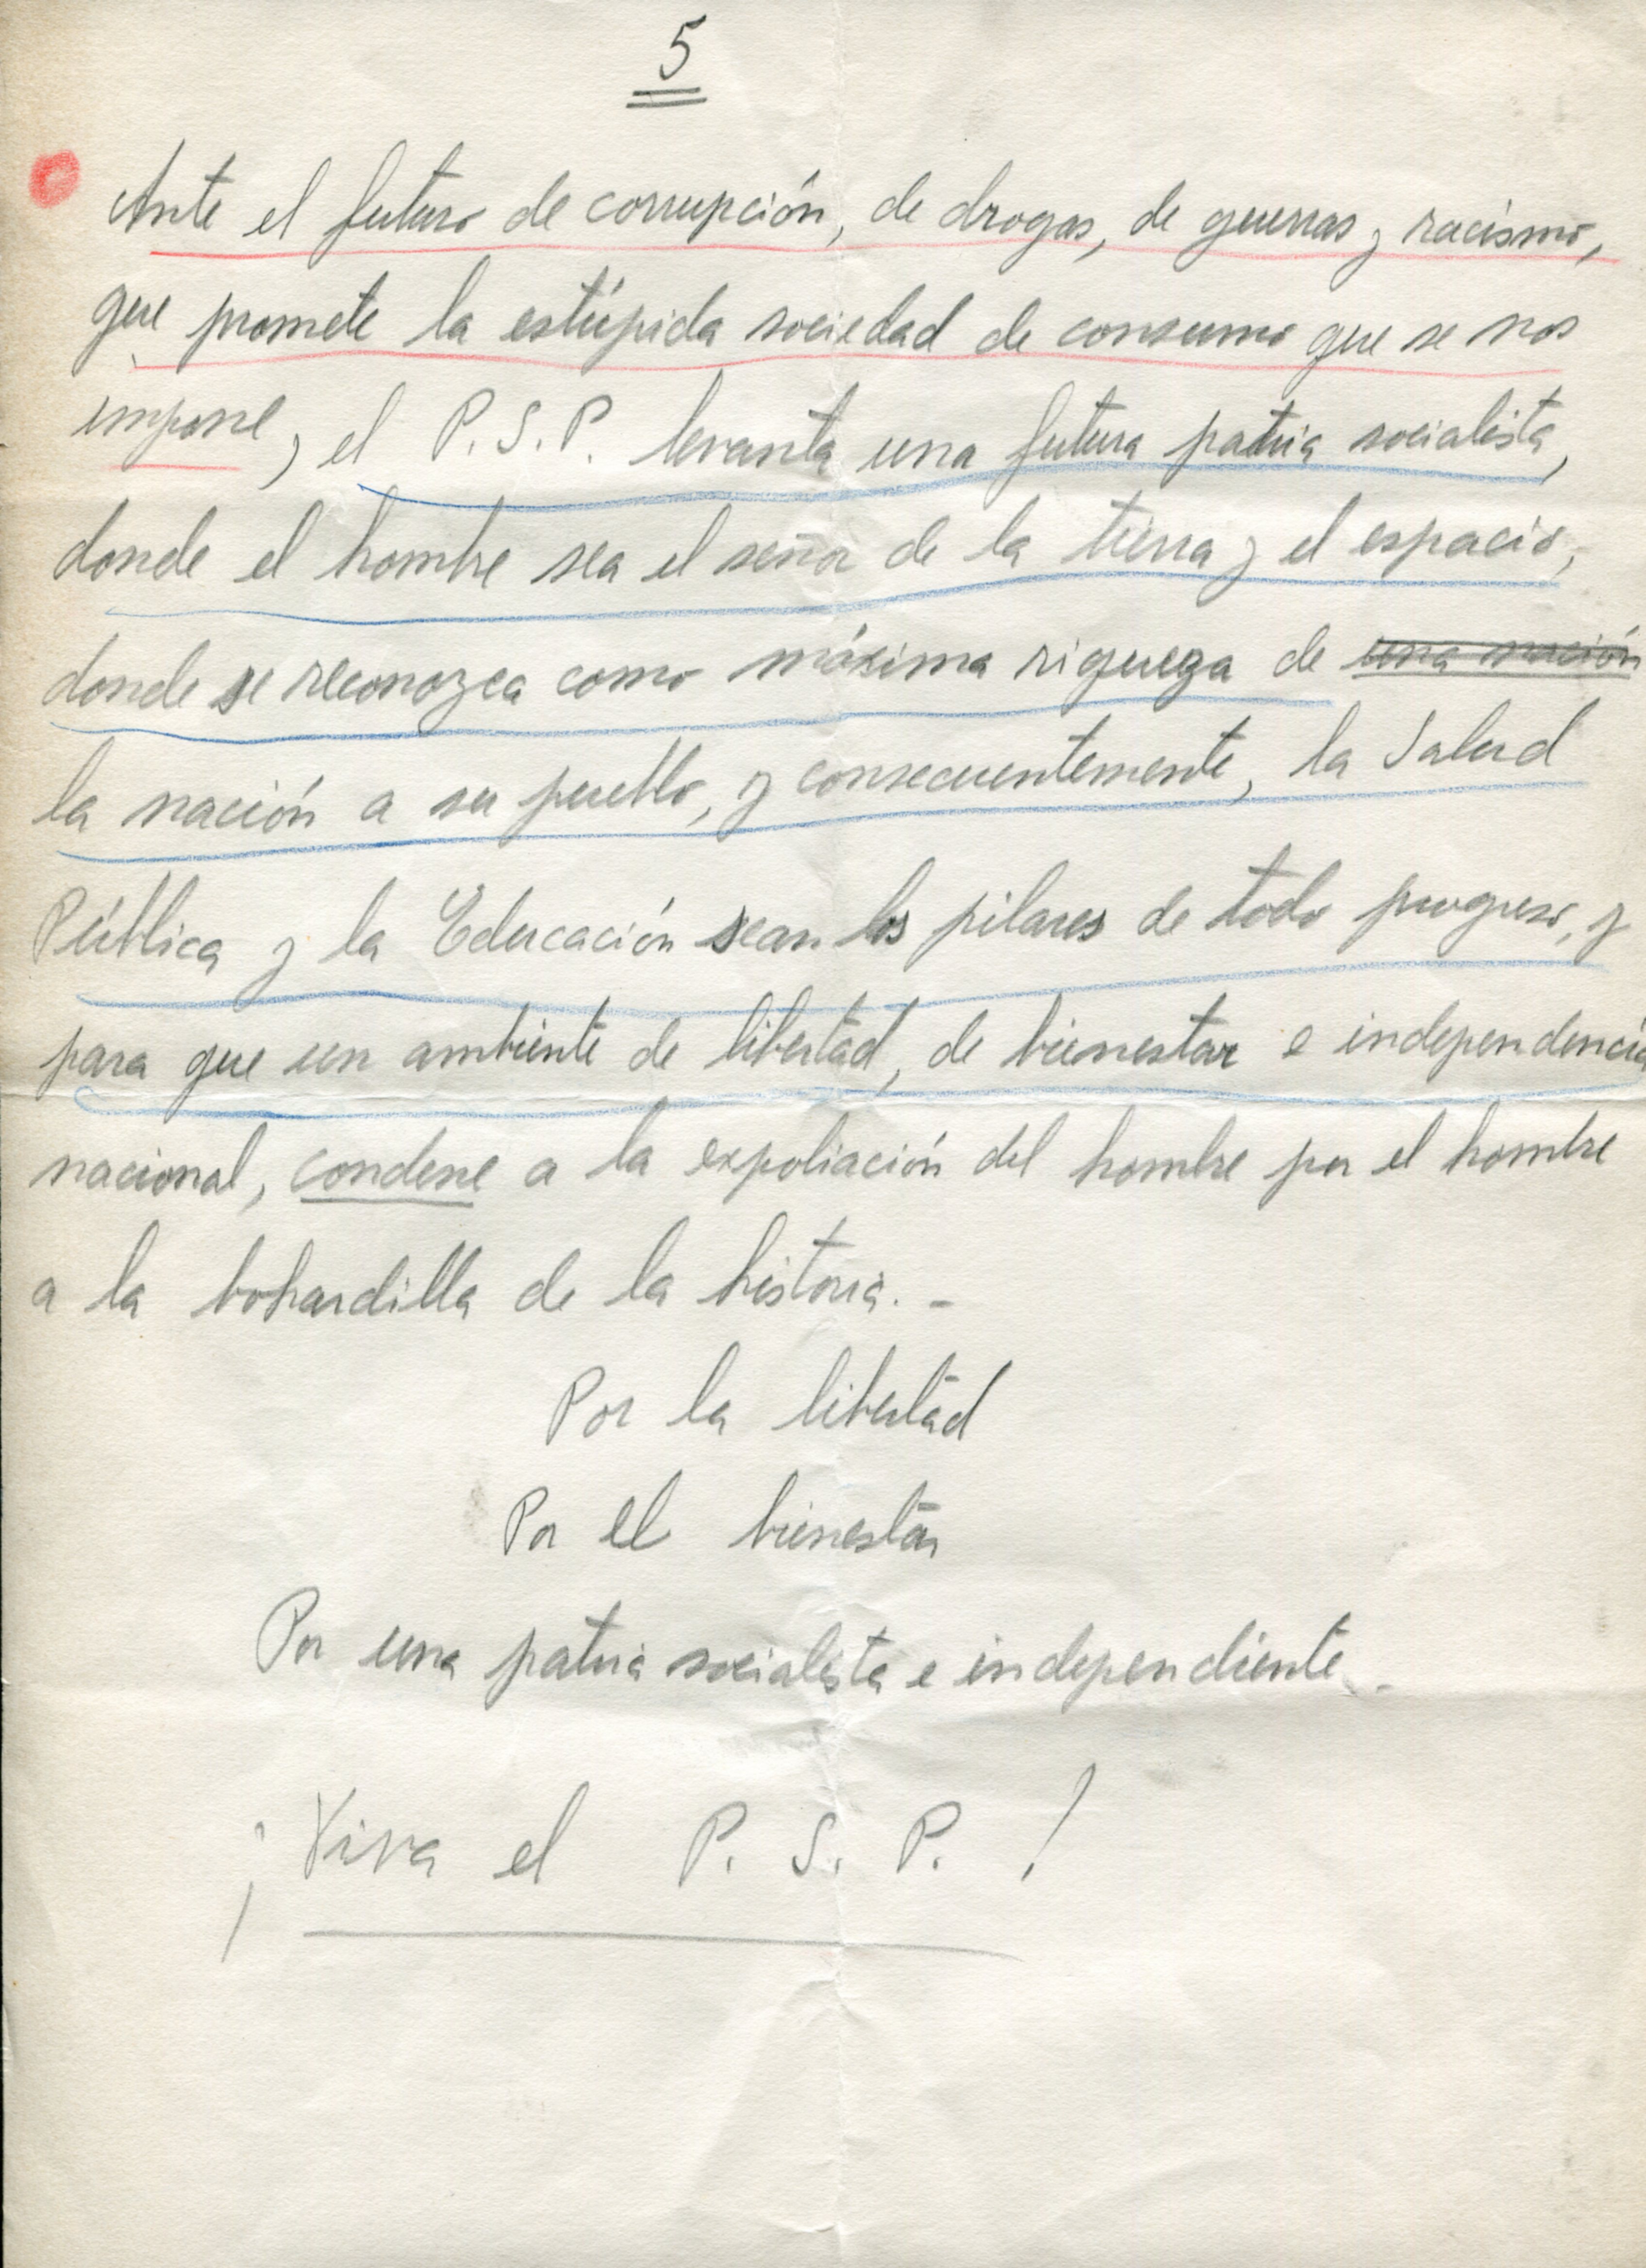 5
Ante el futuro de corrupción, de drogas, de guerras y racismo,
que promete la estúpida sociedad de consumo que se nos
impone, el P.S.P. levanta una futura patria socialista,
donde el hombre sea el señor de la tierra y el espacio,
donde se reconozca como máxima riqueza de una nación
la nación a su pueblo, y consecuentemente, la Salud
Pública y la Educación sean los pilares de todo progreso, y
para que un ambiente de libertad, de bienestar e independencia
nacional, condene a la expoliación del hombre por el hombre
a la bohardilla de la historia. -
Por la libertad
Por el bienestar
Por una patria socialista e independiente.-
¡Viva el P. S. P. !